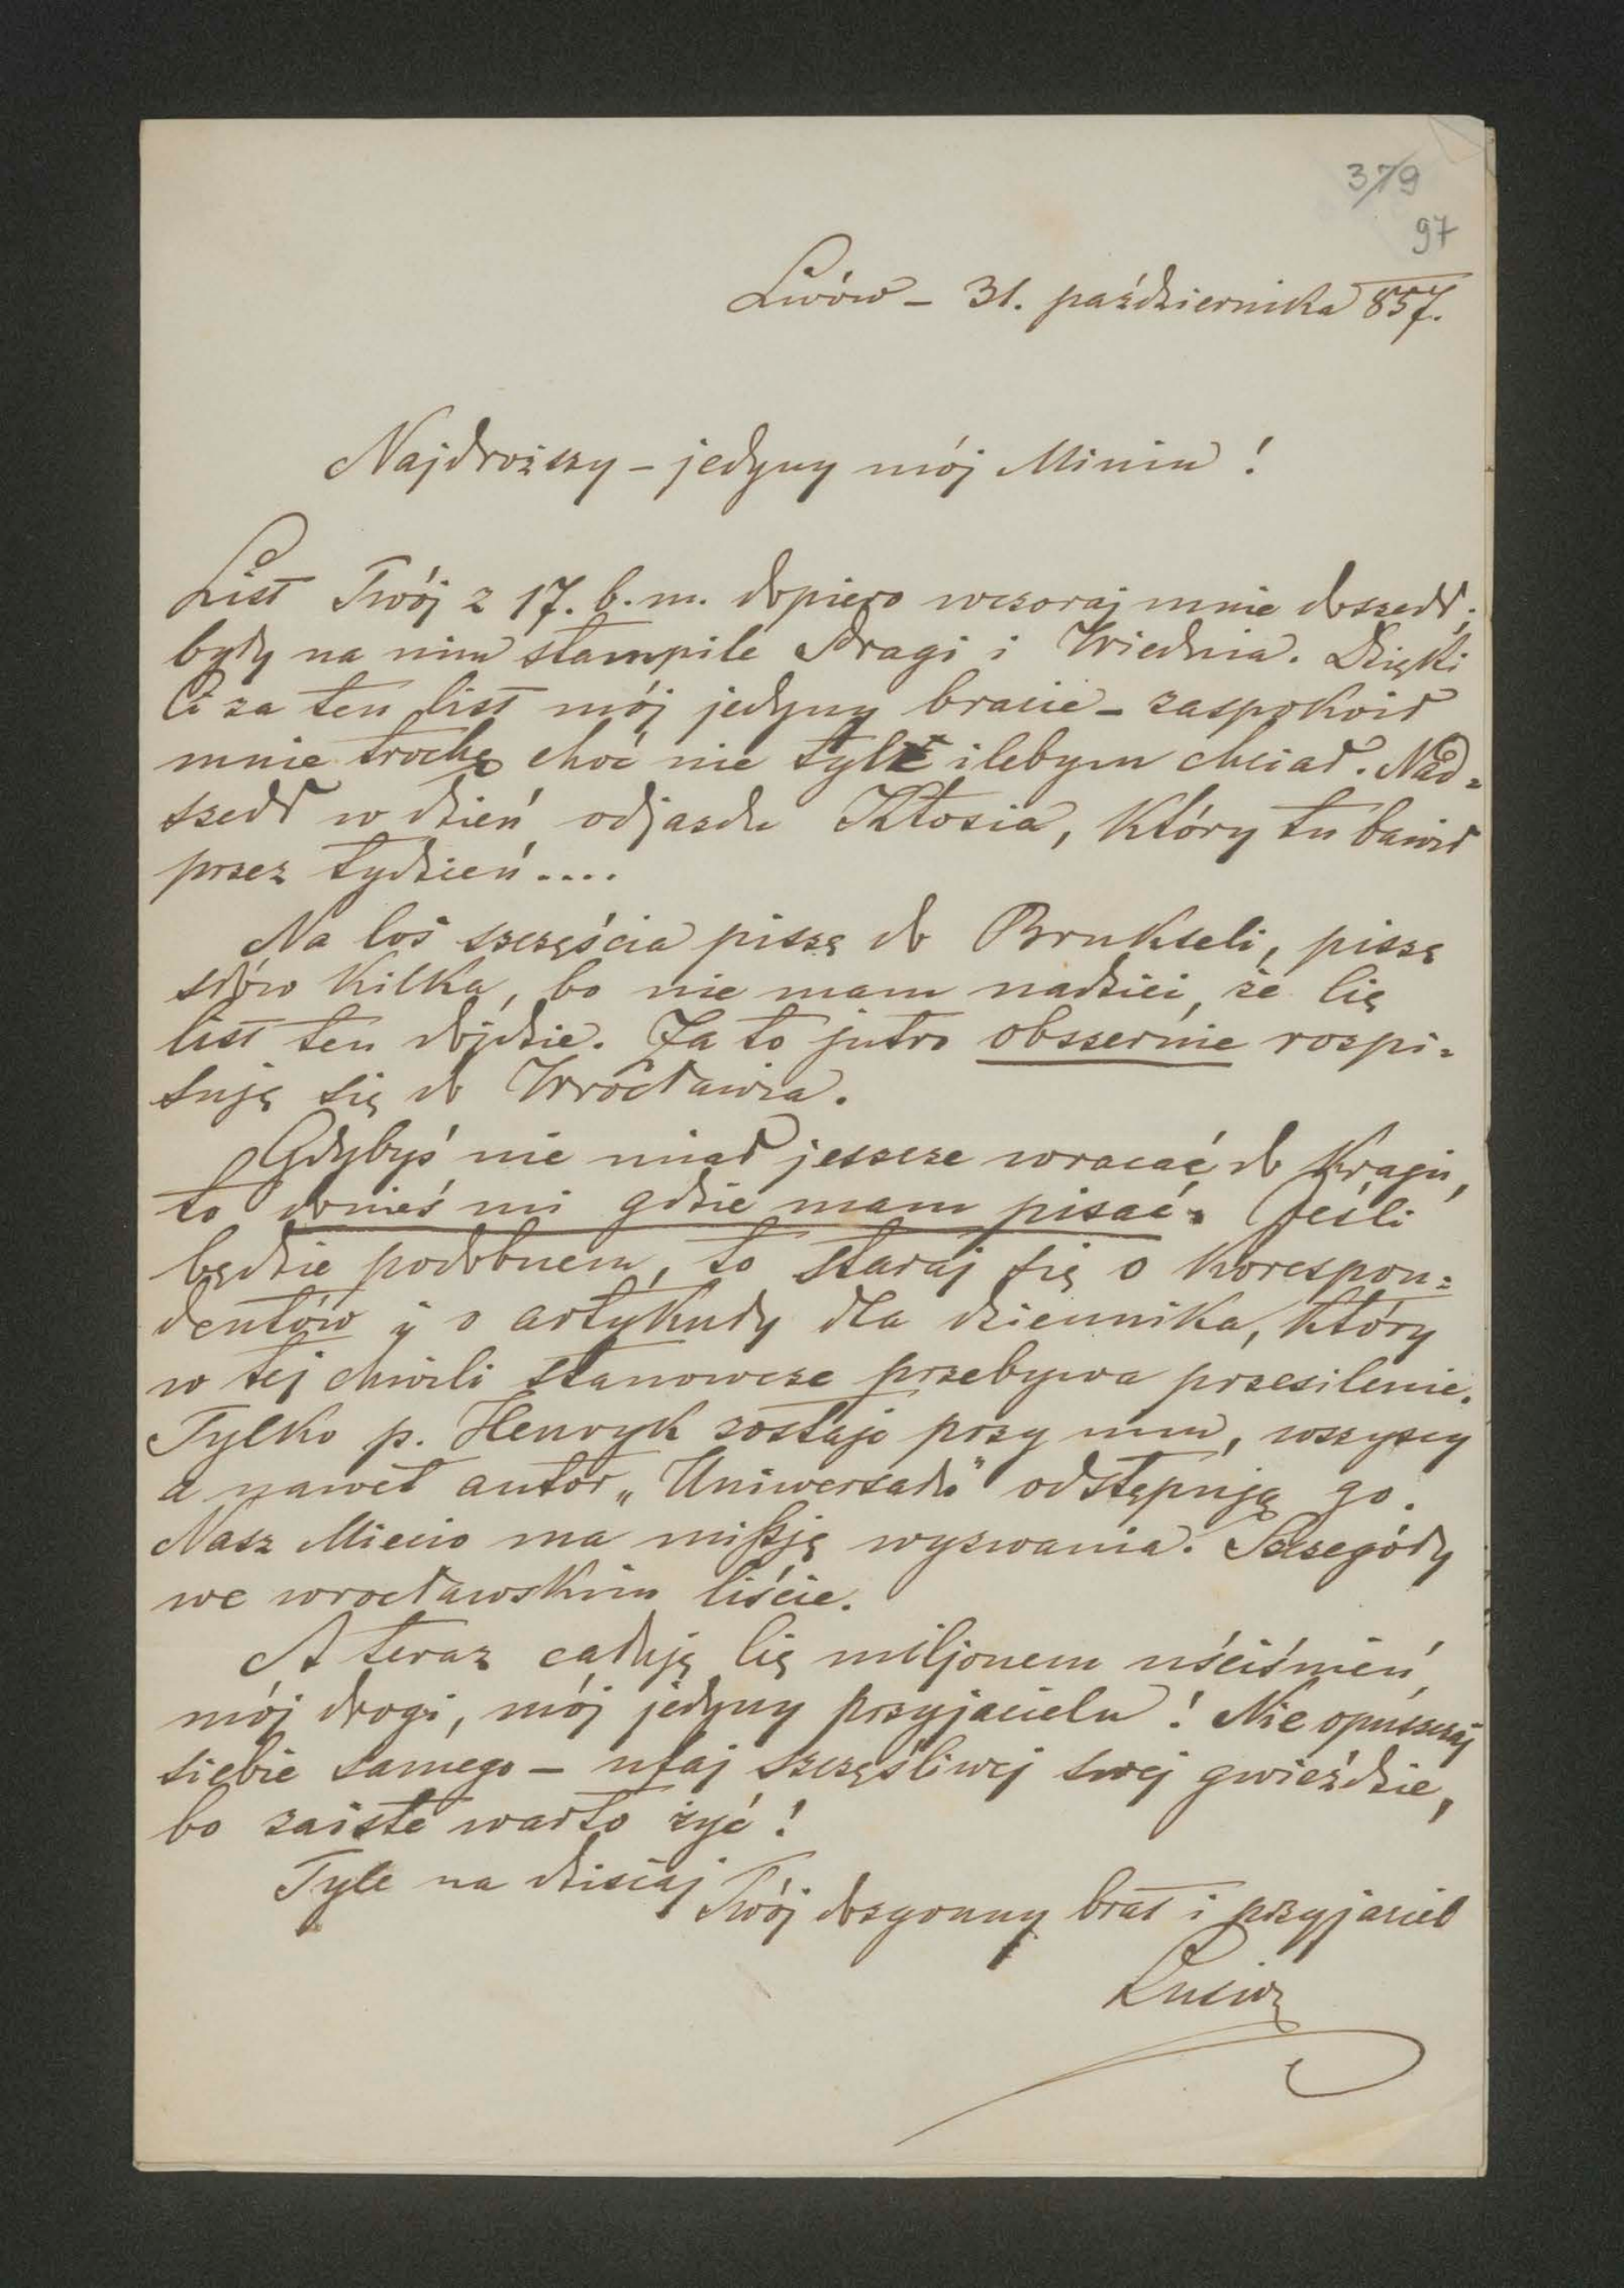 379
97
Lwów – 31. października 857.
Najdroższy – jedyny mój Miniu!
List Twój z 17. b. m. dopiero wczoraj mnie doszedł;
były na nim stampile Pragi i Wiednia. Dzięki
Ci za ten list mój jedyny bracie – zaspokoił
mnie trochę choć nie tyle ilebym chciał. Nad=
szedł w dzień odjazdu Kłosia, który tu bawił
przez tydzień....
Na los szczęścia piszę do Brukseli, piszę
słów kilka, bo nie mam nadziei, że Cię
list ten dojdzie. Za to jutro obszernie rospi=
suję się do Wrocławia.
Gdybyś nie miał jeszcze wracać do Kraju,
to donieś mi gdzie mam pisać. Jeśli
będzie podobnem, to staraj się o korespon=
dentów i o artykuły dla dziennika, który
w tej chwili stanowcze przebywa przesilenie.
Tylko p. Henryk zostaje przy nim, wszyscy
a nawet autor „Uniwersału" odstępują go.
Nasz Miecio ma missję wyzwania. Szczegóły
we wrocławskim liście.
A teraz całuję Cię miljonem uściśnień,
mój drogi, mój jedyny przyjacielu! Nie opuszczaj
siebie samego – ufaj szczęśliwej swej gwieździe,
bo zaiste warto żyć!
Tyle na dzisiaj
Twój dozgonny brat i przyjaciel